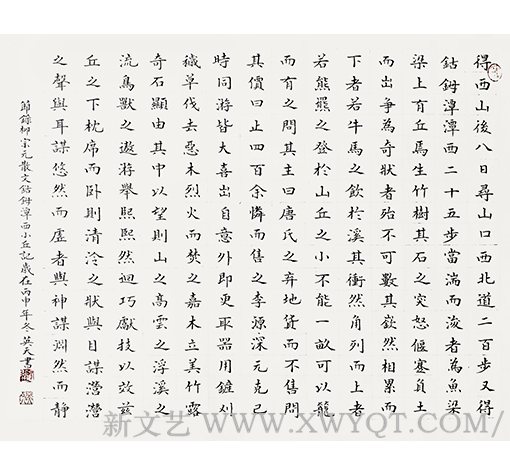 得西山後八日尋山口西北道二百步又得
鈷鉧潭潭西二十五步當湍而浚者為魚梁
梁上有丘焉生竹樹其石之突怒偃蹇負土
而出爭為奇狀者殆不可數其嶔然相累而
下者若牛馬之飲於溪其衝然角列而上者
若熊羆之登於山丘之小不能一畝可以籠
而有之問其主曰唐氏之弃地貨而不售問
其價曰止四百余憐而售之李源深元克己
時同游皆大喜出自意外即更取器用鏟刈
穢草伐去惡木烈火而焚之嘉木立美竹露
奇石顯由其中以望則山之高雲之浮溪之
流鳥獸之遨游舉熙熙然迴巧獻技以效茲
丘之下枕席而卧則清泠之狀與目謀瀯瀯
之聲與耳謀悠然而虛者與神謀淵然而靜
節錄柳宗元散文鈷鉧潭西小丘記歲在丙申年冬英天書
新文艺 www.XWYQT.COM/